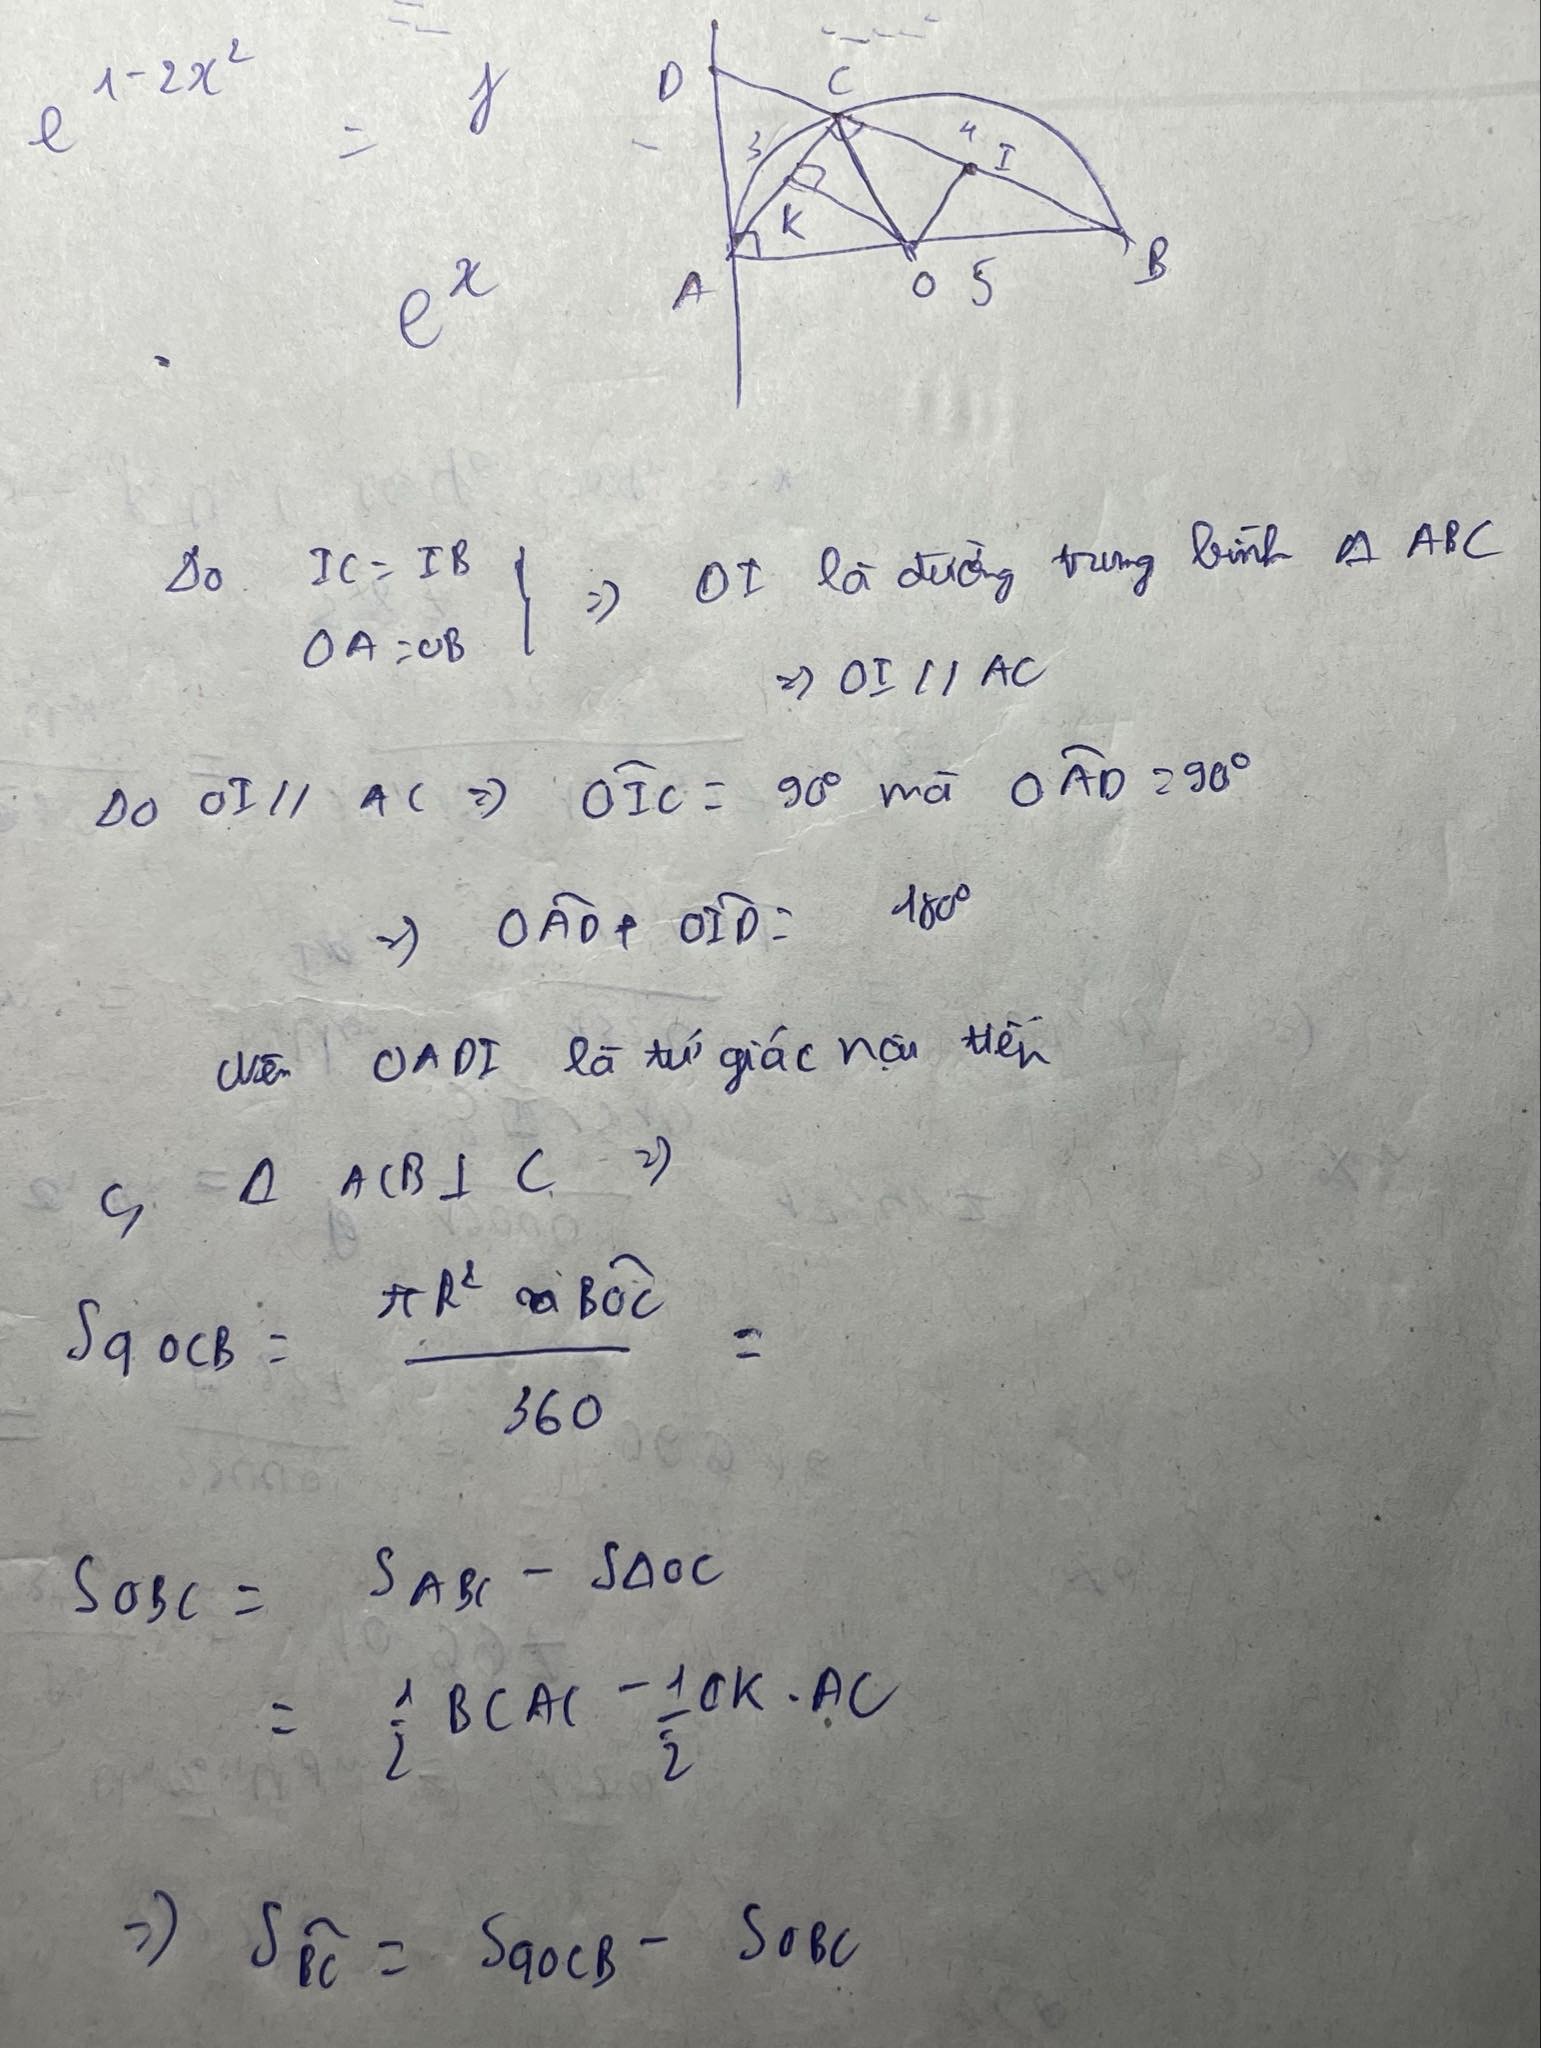 e^{1-2x^2} = y
e^x
D C 3 4 I K A O 5 B
Do IC = IB
OA = OB } => OI là đường trung bình Δ ABC
=> OI // AC
Do OI // AC => OIC = 90° mà OAD = 90°
=> OAD + OID = 180°
nên OADI là tứ giác nội tiếp
c, Δ ACB ⊥ C =>
Sq OCB = πR² BOC / 360 =
SOBC = SABC - SAOC
= 1/2 BC AC - 1/2 OK . AC
=> SBC = SqOCB - SOBC